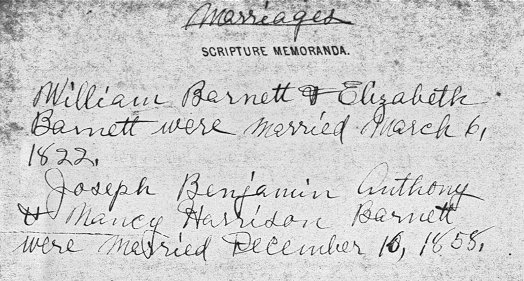 Marriages
SCRIPTURE MEMORANDA.
William Barnett & Elizabeth
Barnett were married March 6,
1822.
Joseph Benjamin Anthony
& Nancy Harrison Barnett
were married December 16, 1858.